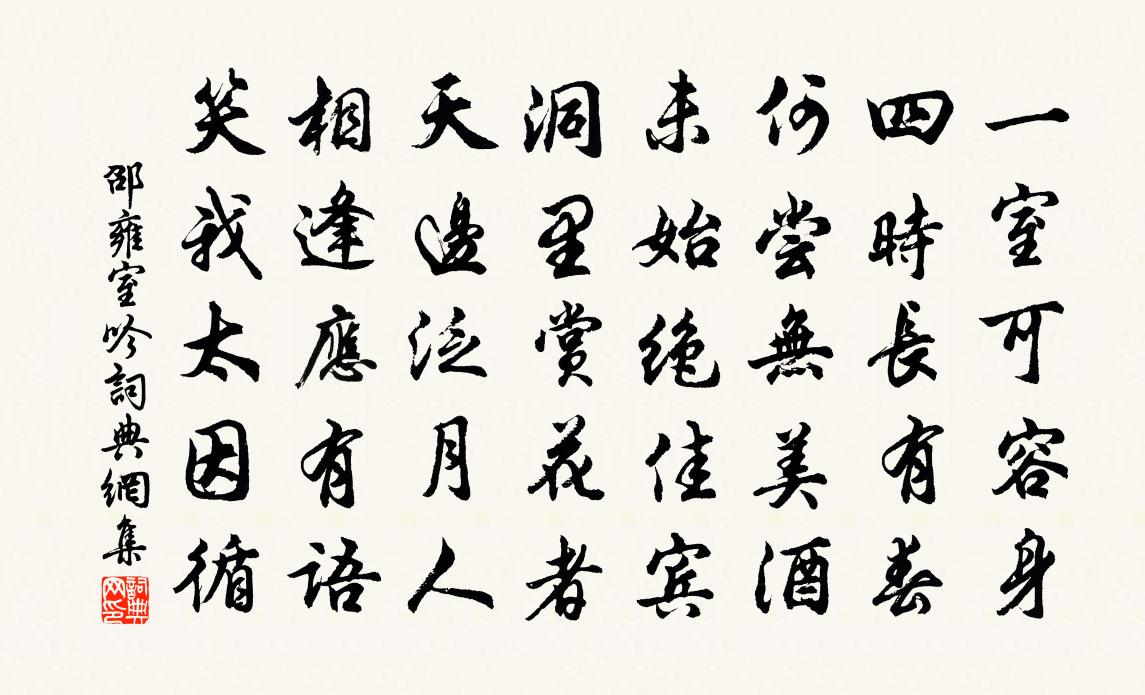 一室可容身
四時長有春
何嘗無美酒
未始絕佳賓
洞里賞花者
天邊泛月人
相逢應有語
笑我太因循
邵雍室吟詞典網集
詞典网印